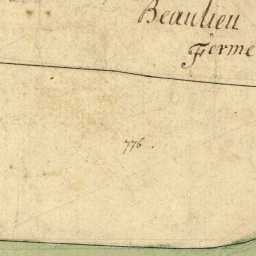 Beaulieu
Ferme
776.